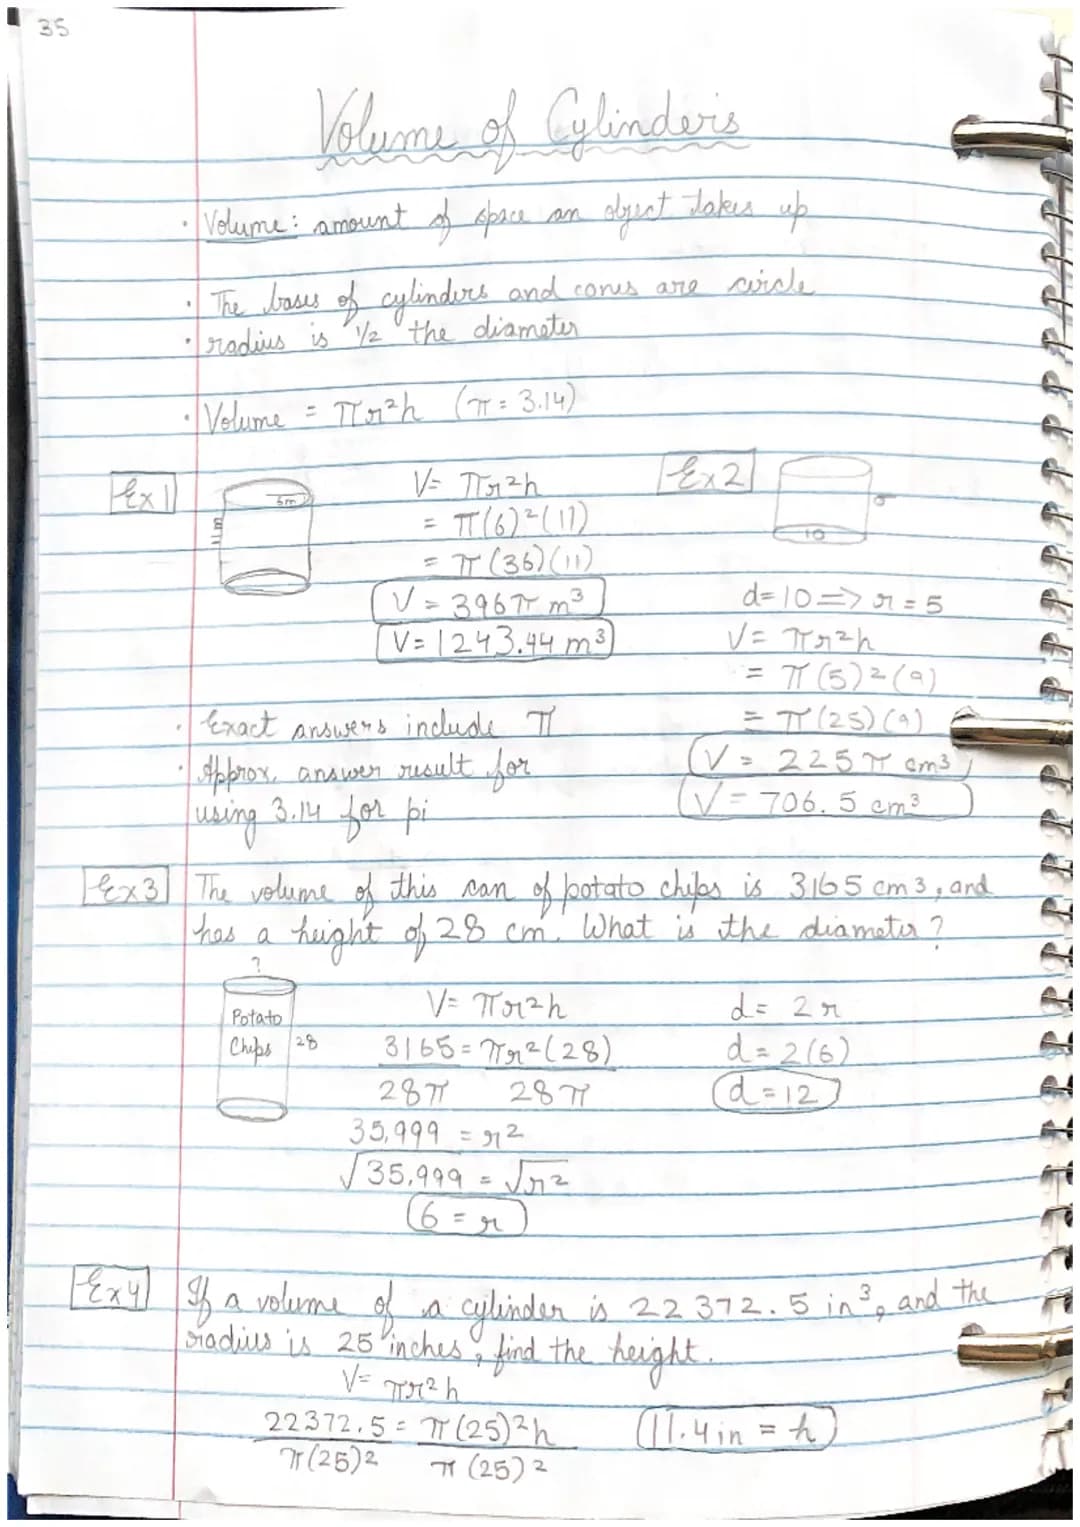 35
Volume of Cylinders
• Volume: amount of space an object takes up
• The bases of cylinders and cones are circle
• radius is 1/2 the diameter
• Volume = πr²h (π = 3.14)
Ex 1
6m
11m
V= πr²h
= π(6)²(11)
= π(36)(11)
V = 396π m³
V = 1243.44 m³
Ex 2
10
d=10 => r = 5
V= πr²h
= π(5)²(9)
= π(25)(9)
V = 225π cm³
V = 706.5 cm³
• Exact answers include π
• Approx. answer result for
using 3.14 for pi
Ex 3 The volume of this can of potato chips is 3165 cm3, and
has a height of 28 cm. What is the diameter?
?
Potato
Chips
28
V= πr²h
3165 = πr²(28)
28π 28π
35,999 = r²
√35,999 = √r²
6 = r
d= 2r
d= 2(6)
d=12
Ex 4 If a volume of a cylinder is 22372.5 in³, and the
radius is 25 inches, find the height.
V= πr²h
22372.5 = π(25)²h
π(25)² π(25)²
11.4 in = h